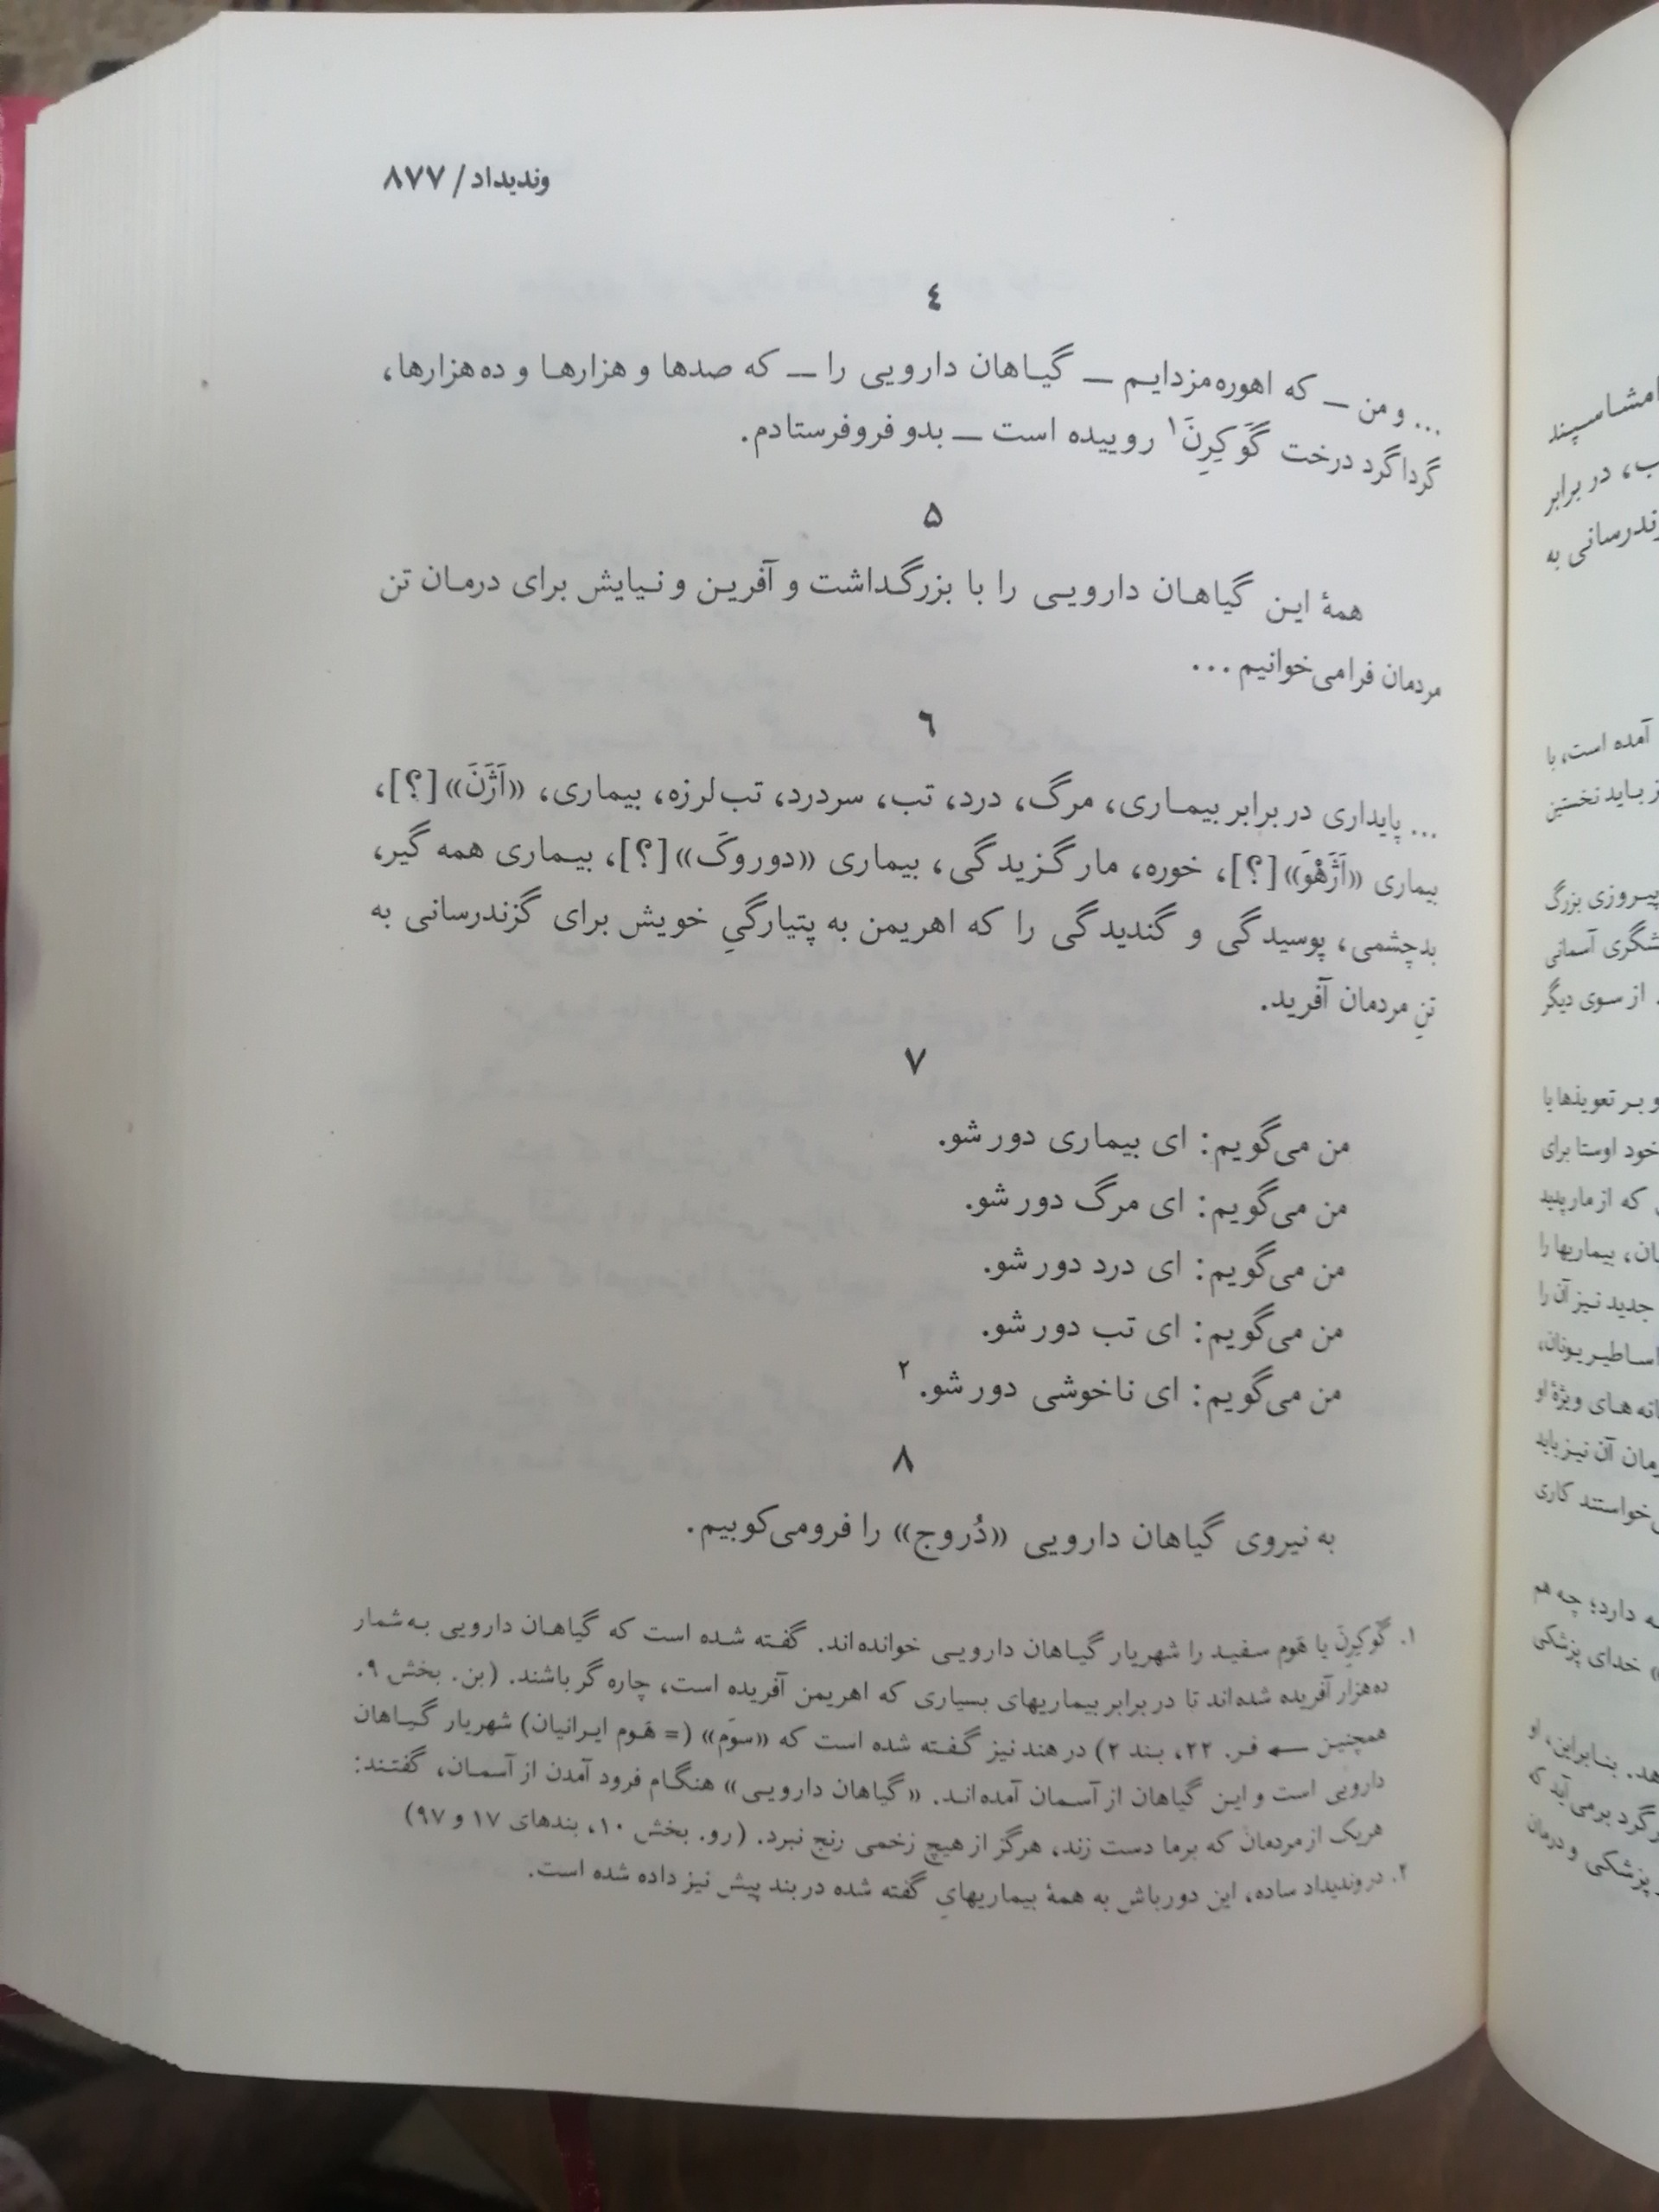 وندیداد / ۸۷۷
۴
... و من ــ که اهوره‌مزدایم ــ گیاهان دارویی را ــ که صدها و هزارها و ده‌هزارها،
گرداگرد درخت گَوَکِرِنَ۱ روییده است ــ بدو فروفرستادم.
۵
همهٔ این گیاهان دارویی را با بزرگداشت و آفرین و نیایش برای درمان تن
مردمان فرامی‌خوانیم ...
۶
... پایداری در برابر بیماری، مرگ، درد، تب، سردرد، تب‌لرزه، بیماری، «اَژَنَ» [؟]،
بیماری «اَژَهْوَ» [؟]، خوره، مارگزیدگی، بیماری «دوروکَ» [؟]، بیماری همه گیر،
بدچشمی، پوسیدگی و گندیدگی را که اهریمن به پتیارگیِ خویش برای گزندرسانی به
تنِ مردمان آفرید.
۷
من می‌گویم: ای بیماری دور شو.
من می‌گویم: ای مرگ دور شو.
من می‌گویم: ای درد دور شو.
من می‌گویم: ای تب دور شو.
من می‌گویم: ای ناخوشی دور شو.۲
۸
به نیروی گیاهان دارویی «دُروج» را فرومی‌کوبیم.
۱. گَوَکِرِنَ یا هَوم سفید را شهریار گیاهان دارویی خوانده‌اند. گفته شده است که گیاهان دارویی به‌شمار
ده‌هزار آفریده شده‌اند تا در برابر بیماریهای بسیاری که اهریمن آفریده است، چاره گر باشند. (بن. بخش ۹.
همچنین ← فر. ۲۲، بند ۲) در هند نیز گفته شده است که «سوَم» (= هَوم ایرانیان) شهریار گیاهان
دارویی است و این گیاهان از آسمان آمده‌اند. «گیاهان دارویی» هنگام فرود آمدن از آسمان، گفتند:
هریک از مردمان که برما دست زند، هرگز از هیچ زخمی رنج نبرد. (رو. بخش ۱۰، بندهای ۱۷ و ۹۷)
۲. در وندیداد ساده، این دورباش به همهٔ بیماریهایِ گفته شده در بند پیش نیز داده شده است.
امشاسپند
در برابر
به
آمده است، با
باید نخستین
پیروزی بزرگ
آسمانی
از سوی دیگر
و بر تعویذها یا
خود اوستا برای
که از مار پدید
بیماریها را
جدید نیز آن را
اساطیر یونان،
های ویژهٔ او
آن نیز باید
کاری
دارد؛ چه هم
خدای پزشکی
بنابراین، او
گرد برمی‌آید که
پزشکی و درمان